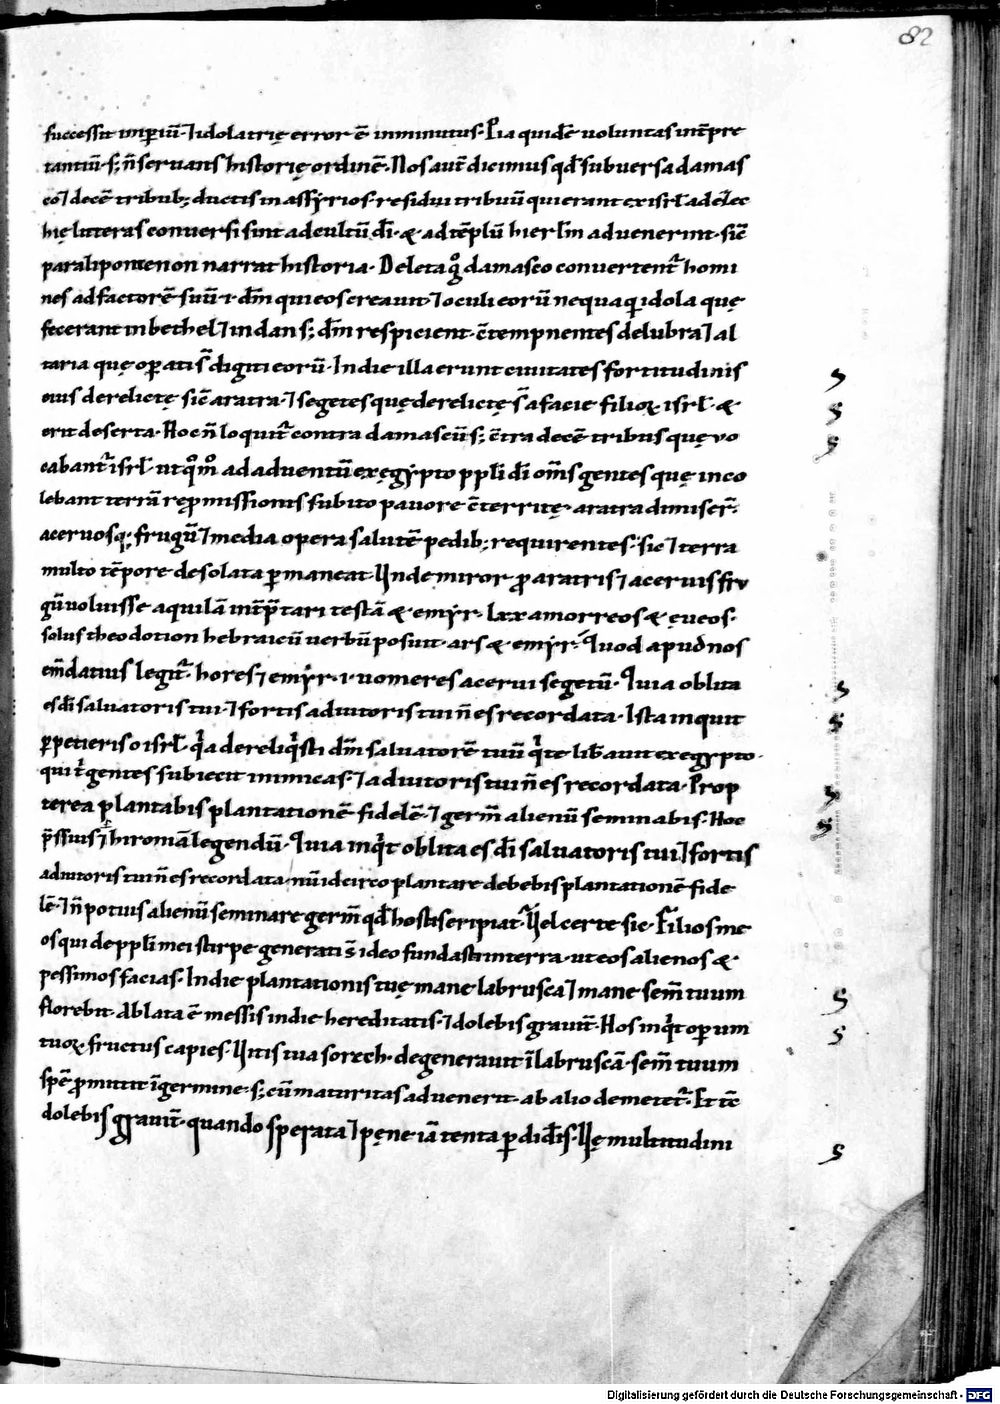 82
successit imperiū· ⁊ idolatrię error ē inminutus. Pia quidē voluntas intēpre
tantiū· s; ñ servans historię ordinē. Nos aut̄ dicimus qđ subversa damas
co ⁊ decē tribub; ductis in assyrios· residui tribuū qui erant ex isrl̄· ad eccle
hię luteras conversi sint ad cultū dī· & ad tēplū hierl̄m advenerint· sic̄
paralipomenon narrat historia. Deleta g° damasco convertent̄ homi
nes ad factorē suū· ɨ· dn̄m qui eos creavit· ⁊ oculi eorū nequaquā idola quę
fecerant in bethel ⁊ in dan s; dn̄m respicient· c̄tempnentes delubra ⁊ al
taria quę opati s̄ digiti eorū· In die illa erunt civitates fortitudinis
eius derelictę sic̄ aratra· ⁊ segetes quę derelictę s̄ a facie filioꝝ isrl̄· &
erit deserta. Hoc ñ loquit̄ contra damascū s; c̄tra decē tribus quę vo
cabant̄ isrl̄· ut qm̄ ad adventū ex egypto ppl̄i dī om̄s gentes quę inco
lebant terrā repmissionis subito pavore c̄territę· aratra dimiser̄·
acervosq; frugū ⁊ media opera salutē pedib; requirentes· sic ⁊ terra
multo tēpore desolata pmaneat· Unde miror p̄ aratris ⁊ acervis fru
gū voluisse aquilā int̄p̄tari testā & emyr· lxx amorreos & ęveos·
solus theodotion hebraicū verbū posuit· ars & emyr· Quod apud nos
em̄datius legit̄· hores ⁊ emyr· ɨ· vomeres acervi segetū· Quia oblita
es dī salvatoris tui· ⁊ fortis adiutoris tui ñ es recordata· Ista inquit
ꝑpetieris o isrl̄· qia dereliqisti dn̄m salvatorē tuū qi te lib̄avit ex egypto·
qui t̄ gentes subiecit inimicas· ⁊ adiutoris tui ñ es recordata· Prop
terea plantabis plantationē fidelē· ⁊ germ̄ alienū seminabis· Hoc
p̄ssius ⁊ hironiā legendū· Quia inqit oblita es dī salvatoris tui ⁊ fortis
adiutoris tui ñ es recordata· nū idcirco plantare debebis plantationē fide
lē· ⁊ ñ potius alienū seminare germ̄ qđ hostis eripiat· Vel certe sic· Filios me
os qui de ppl̄i mei stirpe generati s̄ ideo fundasti in terra· ut eos alienos &
pessimos facias· In die plantationis tuę mane labrusca ⁊ mane sem̄ tuum
florebit· Ablata ē messis in die hereditatis· ⁊ dolebis gravit̄· Hos inqit operum
tuoꝝ· fructus capies· Vitis tua sorech· degeneravit ī labruscā· sem̄ tuum
spē p̄mittit ī germine· s; cū maturitas advenerit· ab alio demetet̄· Et tē
dolebis gravit̄· quando sperata ⁊ pęne iā tenta pdidis̄· Vę multitudini
Digitalisierung gefördert durch die Deutsche Forschungsgemeinschaft - DFG